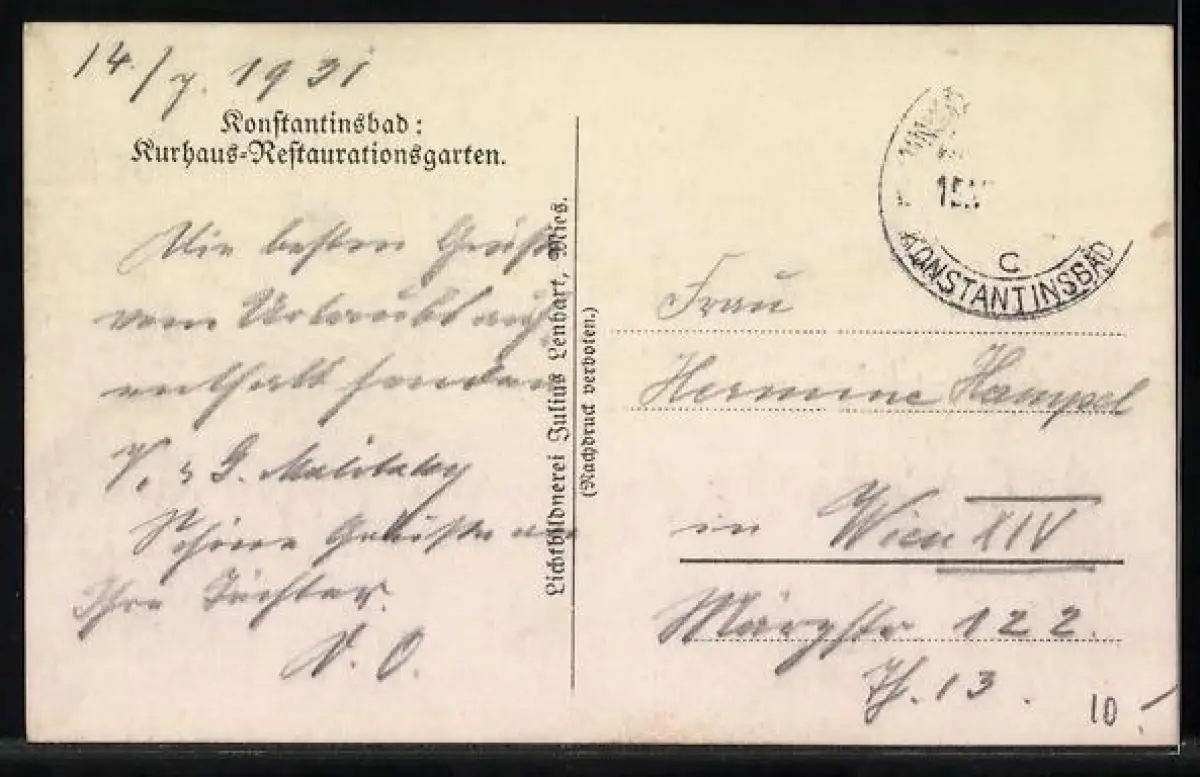 14./7. 1931
Konstantinsbad:
Kurhaus-Restaurationsgarten.
Die besten Grüße
vom Urlaubsauf
enthalt senden
V. & G.
Schöne Grüße an
Ihre Töchter.
V. O.
Lichtbildnerei Julius Lenhart, Mies.
(Nachdruck verboten.)
15.
C
KONSTANTINSBAD
Frau
Hermine Hampel
in Wien XIV
Märzstr. 122.
Th. 13.
10